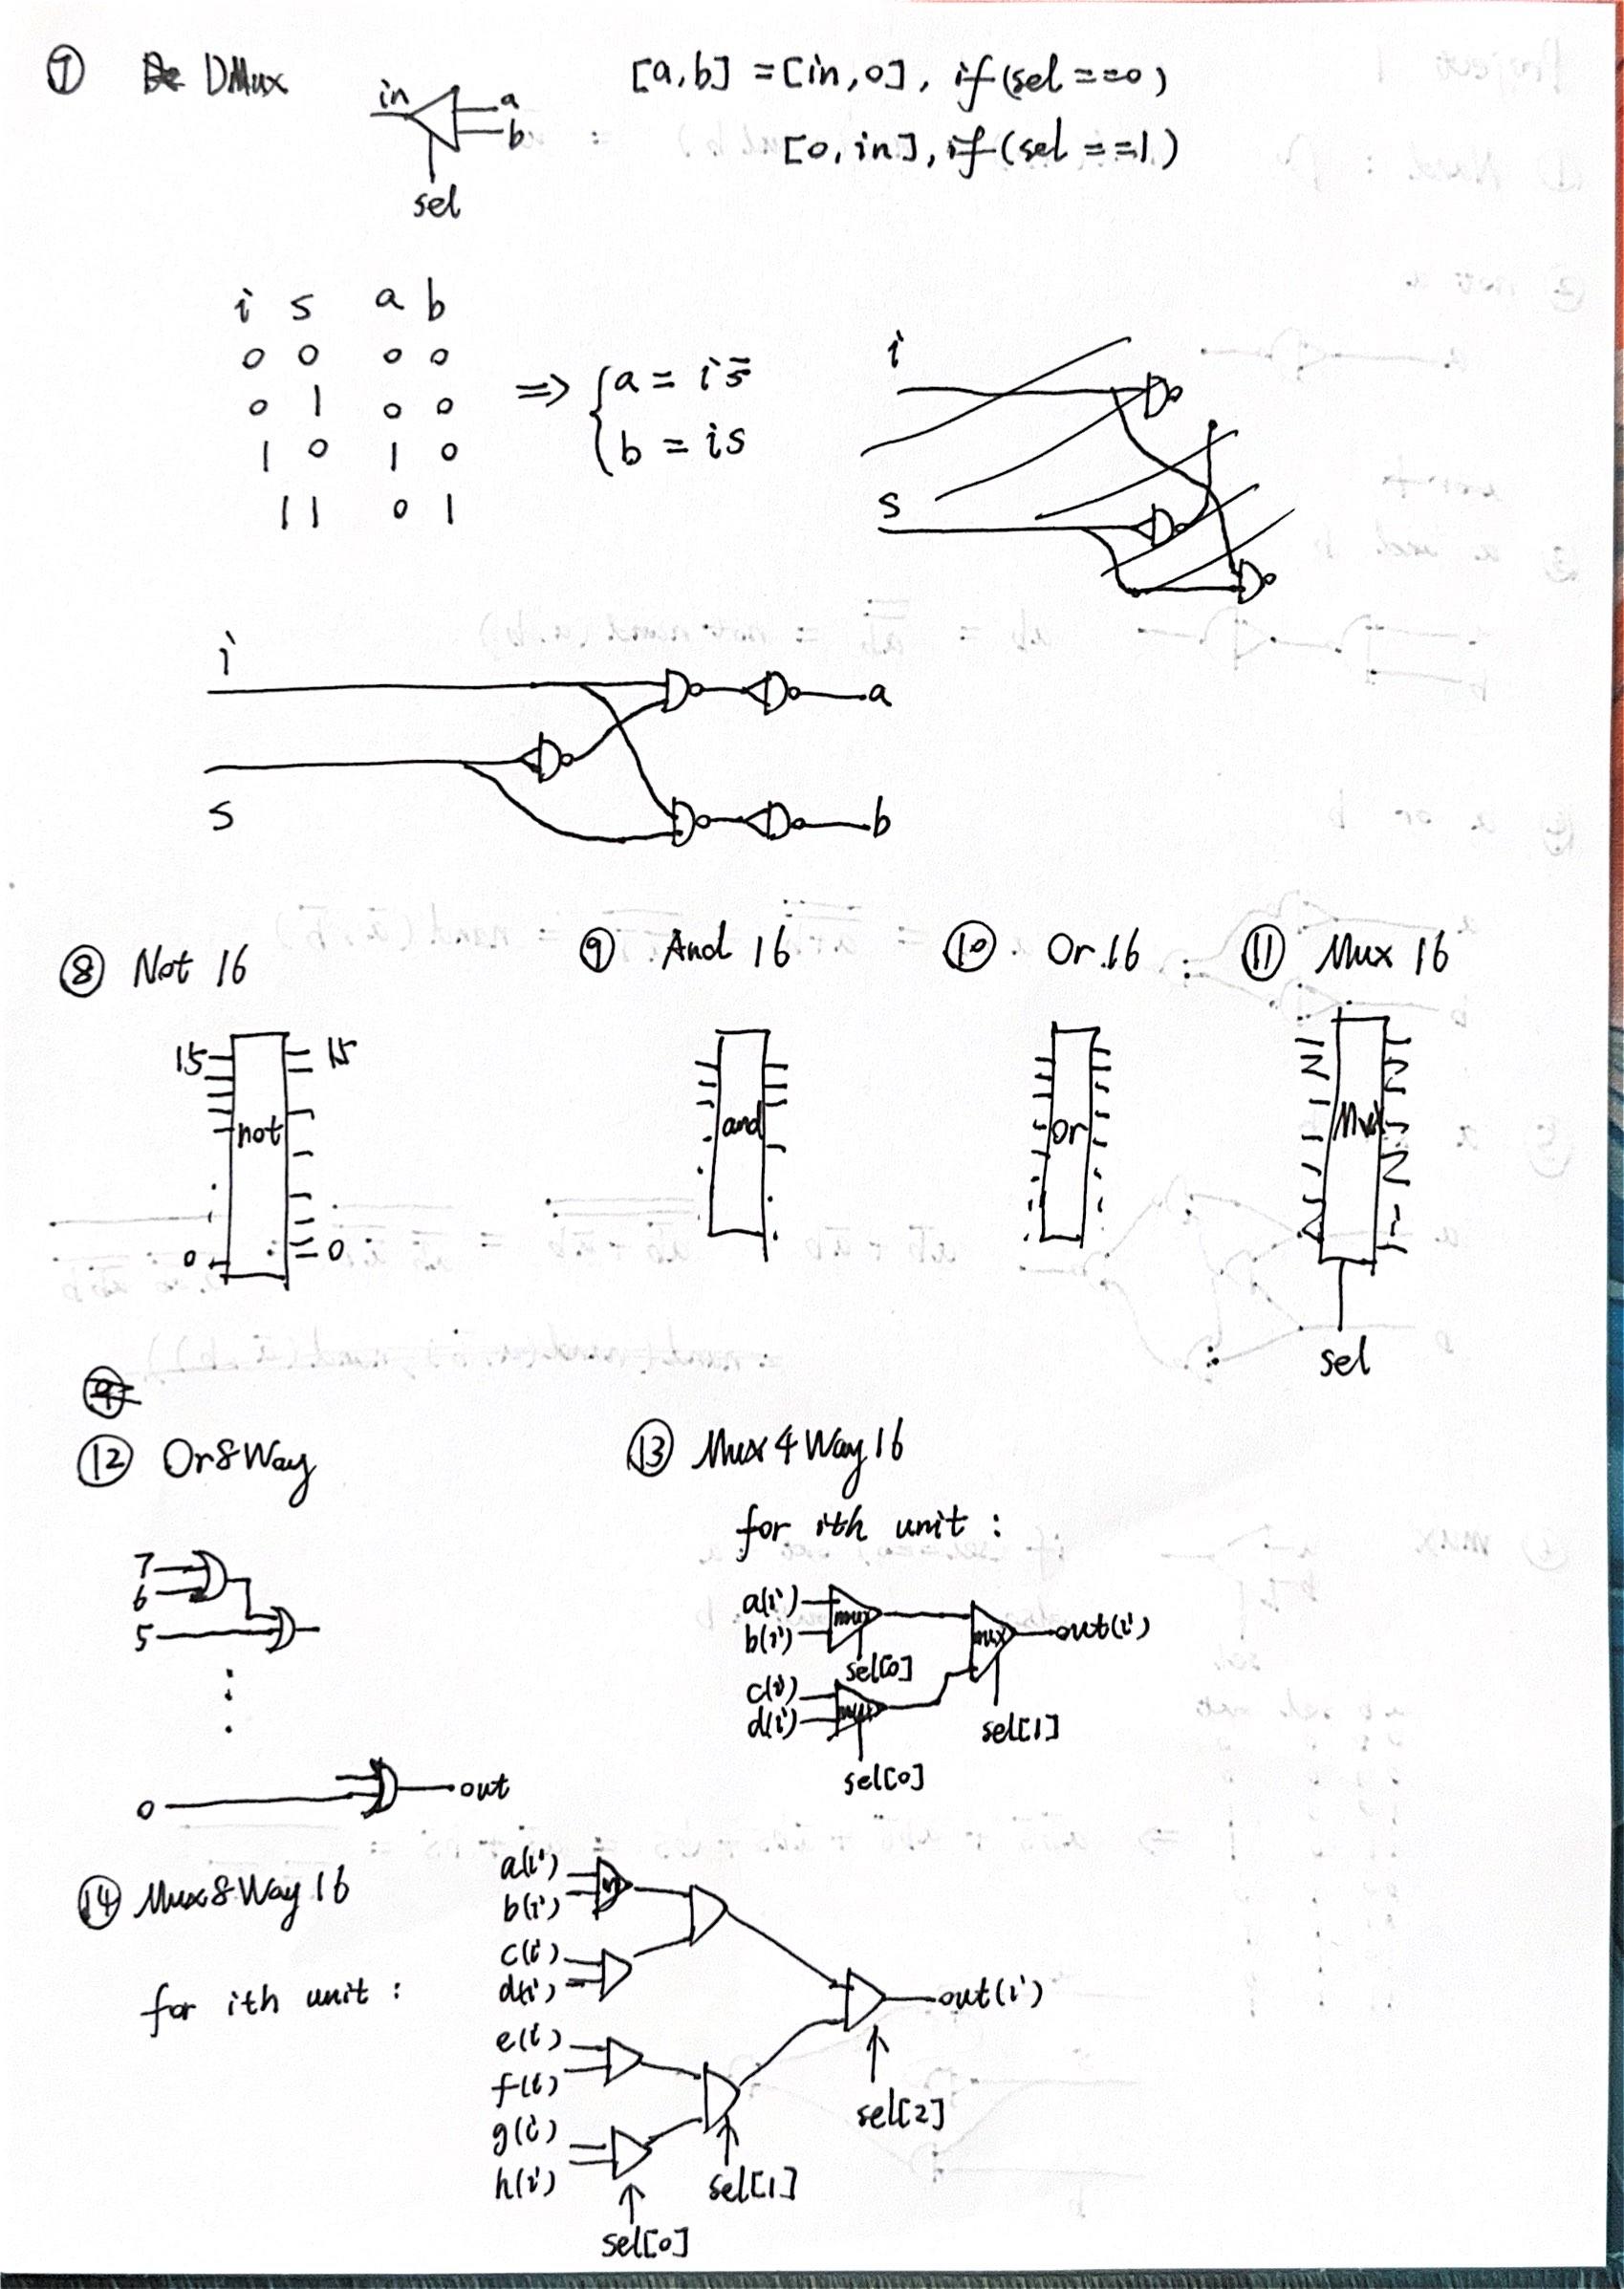 ⑦ DMux
in a
b
sel
[a,b] = [in,0], if(sel==0)
[0,in], if(sel==1)
i s a b
0 0 0 0
0 1 0 0
1 0 1 0
1 1 0 1
⇒ { a = i s̄
b = i s
i
s
i
a
s
b
⑧ Not 16
15 15
not
0 0
⑨ And 16
and
⑩ Or 16
Or
⑪ Mux 16
Mux
sel
⑫ Or8Way
7
6
5
0 out
⑬ Mux4Way16
for ith unit :
a(i) mux
b(i)
sel[0]
c(i) mux
d(i)
sel[0]
mux out(i)
sel[1]
⑭ Mux8Way16
for ith unit :
a(i)
b(i)
c(i)
d(i)
e(i)
f(i)
g(i)
h(i)
out(i)
sel[2]
sel[1]
sel[0]